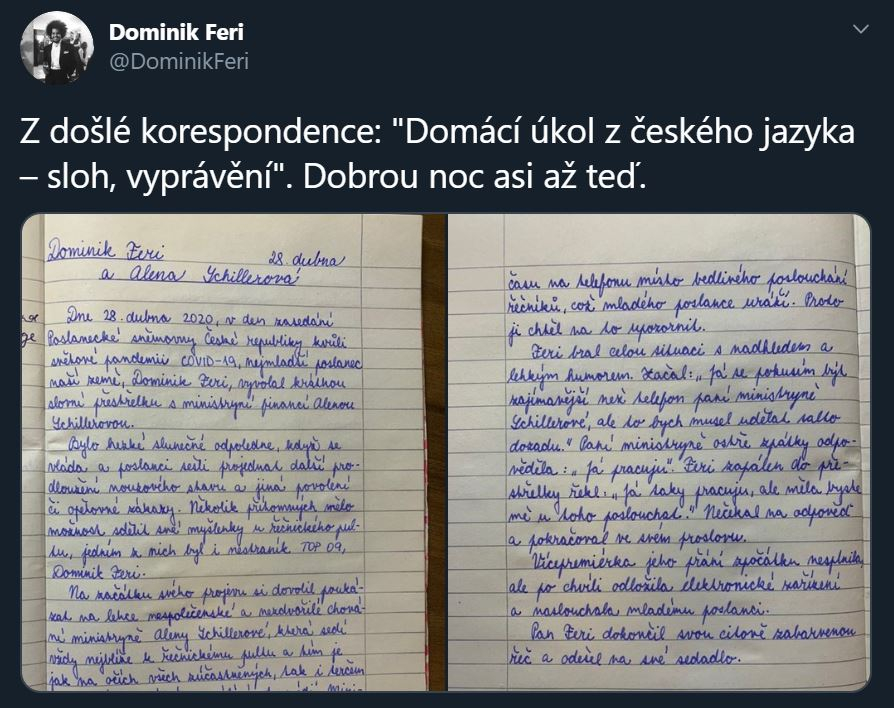 Dominik Feri
@DominikFeri
Z došlé korespondence: "Domácí úkol z českého jazyka
– sloh, vyprávění". Dobrou noc asi až teď.
Dominik Feri 28. dubna
a Alena Schillerová
Dne 28. dubna 2020, v den zasedání
Poslanecké sněmovny České republiky kvůli
světové pandemii COVID-19, nejmladší poslanec
naší země, Dominik Feri, vyvolal krátkou
slovní přestřelku s ministryní financí Alenou
Schillerovou.
Bylo hezké slunečné odpoledne, když se
vláda a poslanci sešli projednat další pro-
dloužení nouzového stavu a jiná povolení
či opětovné zákazy. Několik přítomných mělo
možnost sdělit své myšlenky u řečnického pul-
tu, jedním z nich byl i nestraník TOP 09,
Dominik Feri.
Na začátku svého projevu si dovolil pouká-
zat na lehce nespolečenské a nezdvořilé chová-
ní ministryně Aleny Schillerové, která sedí
vždy nejblíže k řečnickému pultu a tím je
jak na očích všech zúčastněných, tak i terčem
času na telefonu místo bedlivého poslouchání
řečníků, což mladého poslance uráží. Proto
ji chtěl na to upozornit.
Feri bral celou situaci s nadhledem a
lehkým humorem. Začal: „Já se pokusím být
zajímavější než telefon paní ministryně
Schillerové, ale to bych musel udělat salto
dozadu." Paní ministryně ostře zpátky odpo-
věděla: „Já pracuju". Feri zapálen do pře-
střelky řekl: „Já taky pracuju, ale měla byste
mě u toho poslouchat." Nečekal na odpověď
a pokračoval ve svém proslovu.
Vicepremiérka jeho přání zpočátku nesplnila,
ale po chvíli odložila elektronické zařízení
a naslouchala mladému poslanci.
Pan Feri dokončil svou citově zabarvenou
řeč a odešel na své sedadlo.